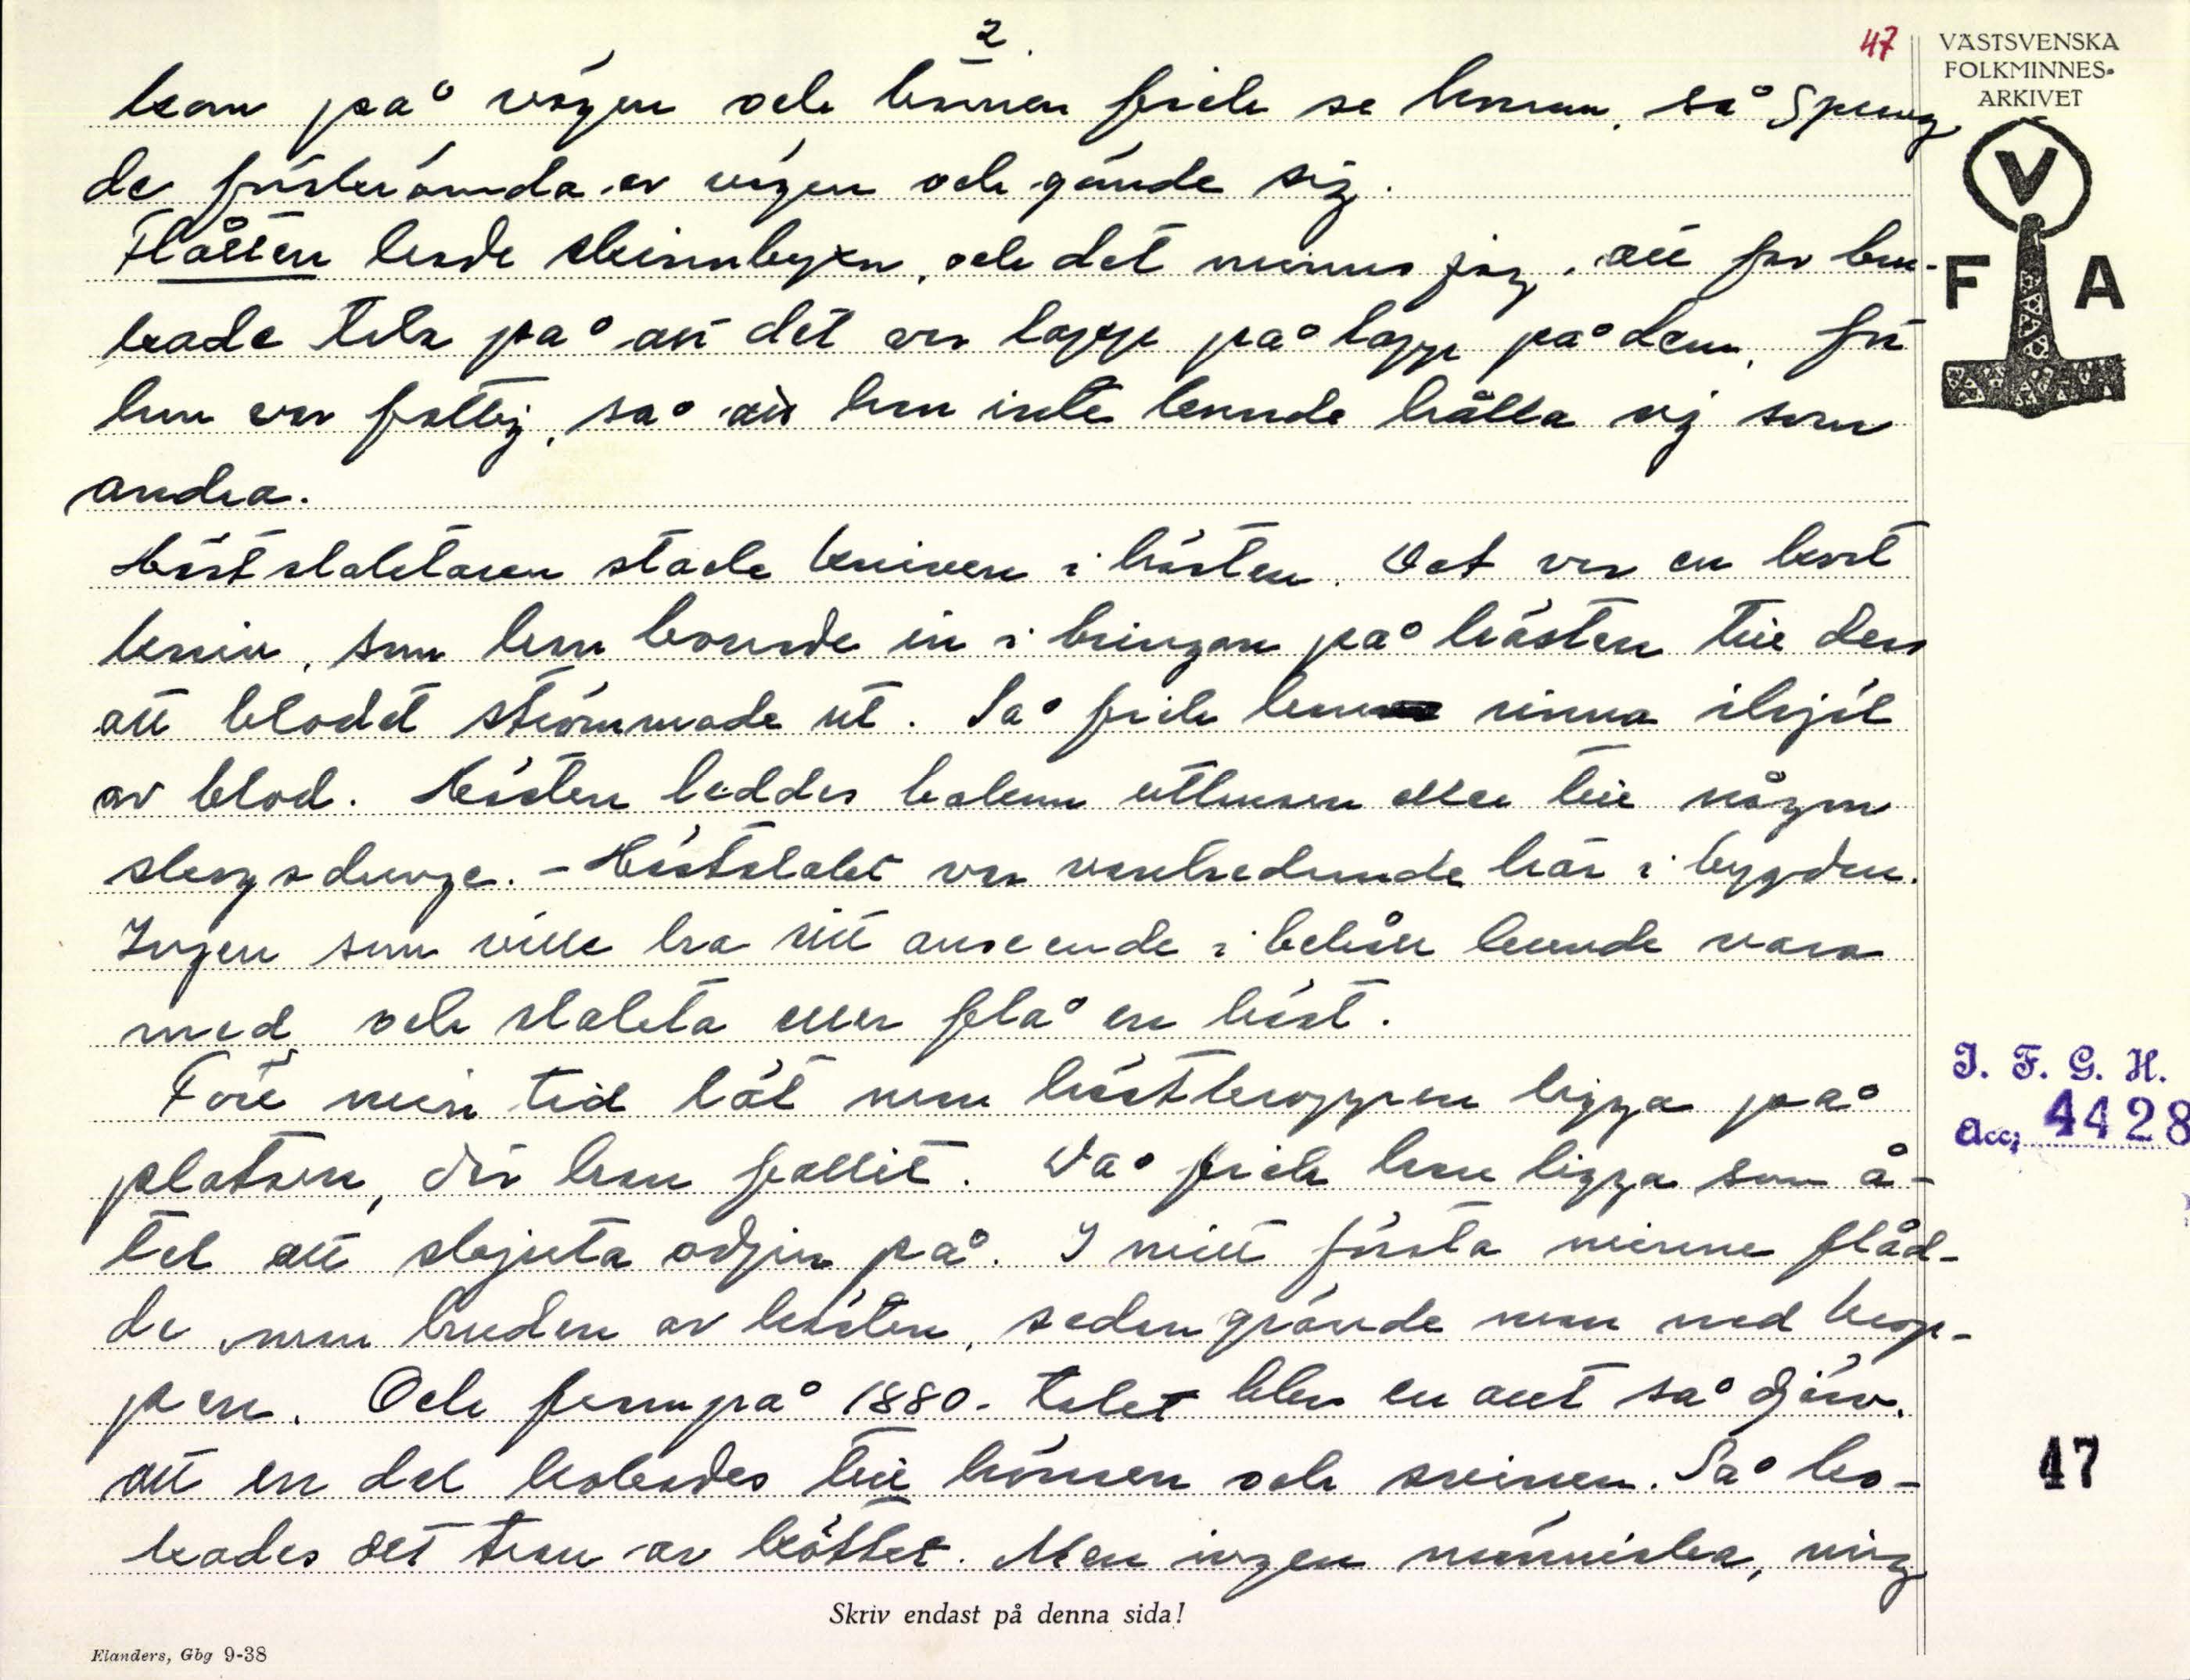 2.
47
VÄSTSVENSKA
FOLKMINNES-
ARKIVET
V
F A
kom på vägen och kvinnor fick se honom, så sprung
de förskrämda av vägen och gömde sig.
Flåtten hade skinnbyxor, och det minns jag, att far bru-
kade tala på att det var lapp på lapp på dem, för
han var fattig, så att han inte kunde hålla sig som
andra.
Hästslaktaren stack kniven i hästen. Det var en kort
kniv, som han körde in i bringan på hästen till dess
att blodet strömmade ut. Så fick han rinna ihjäl
av blod. Hästen leddes bakom utthusen eller till någon
skogsdunge. - Hästslakt var vanhedrande här i bygden.
Ingen som ville ha sitt anseende i behåll kunde vara
med och slakta eller flå en häst.
Före min tid lät man hästkroppen ligga på
platsen, där han fallit. Då fick han ligga som å-
tel att skjuta odjur på. I mitt första minne flåd-
de man huden av hästen, sedan grävde man ned krop-
pen. Och fram på 1880-talet blev en allt så djärv,
att en del kokades till hönsen och svinen. Så ko-
kades det tran av köttet. Men ingen människa, mig
I. F. G. H.
Acc. 4428
47
Skriv endast på denna sida!
Elanders, Gbg 9-38